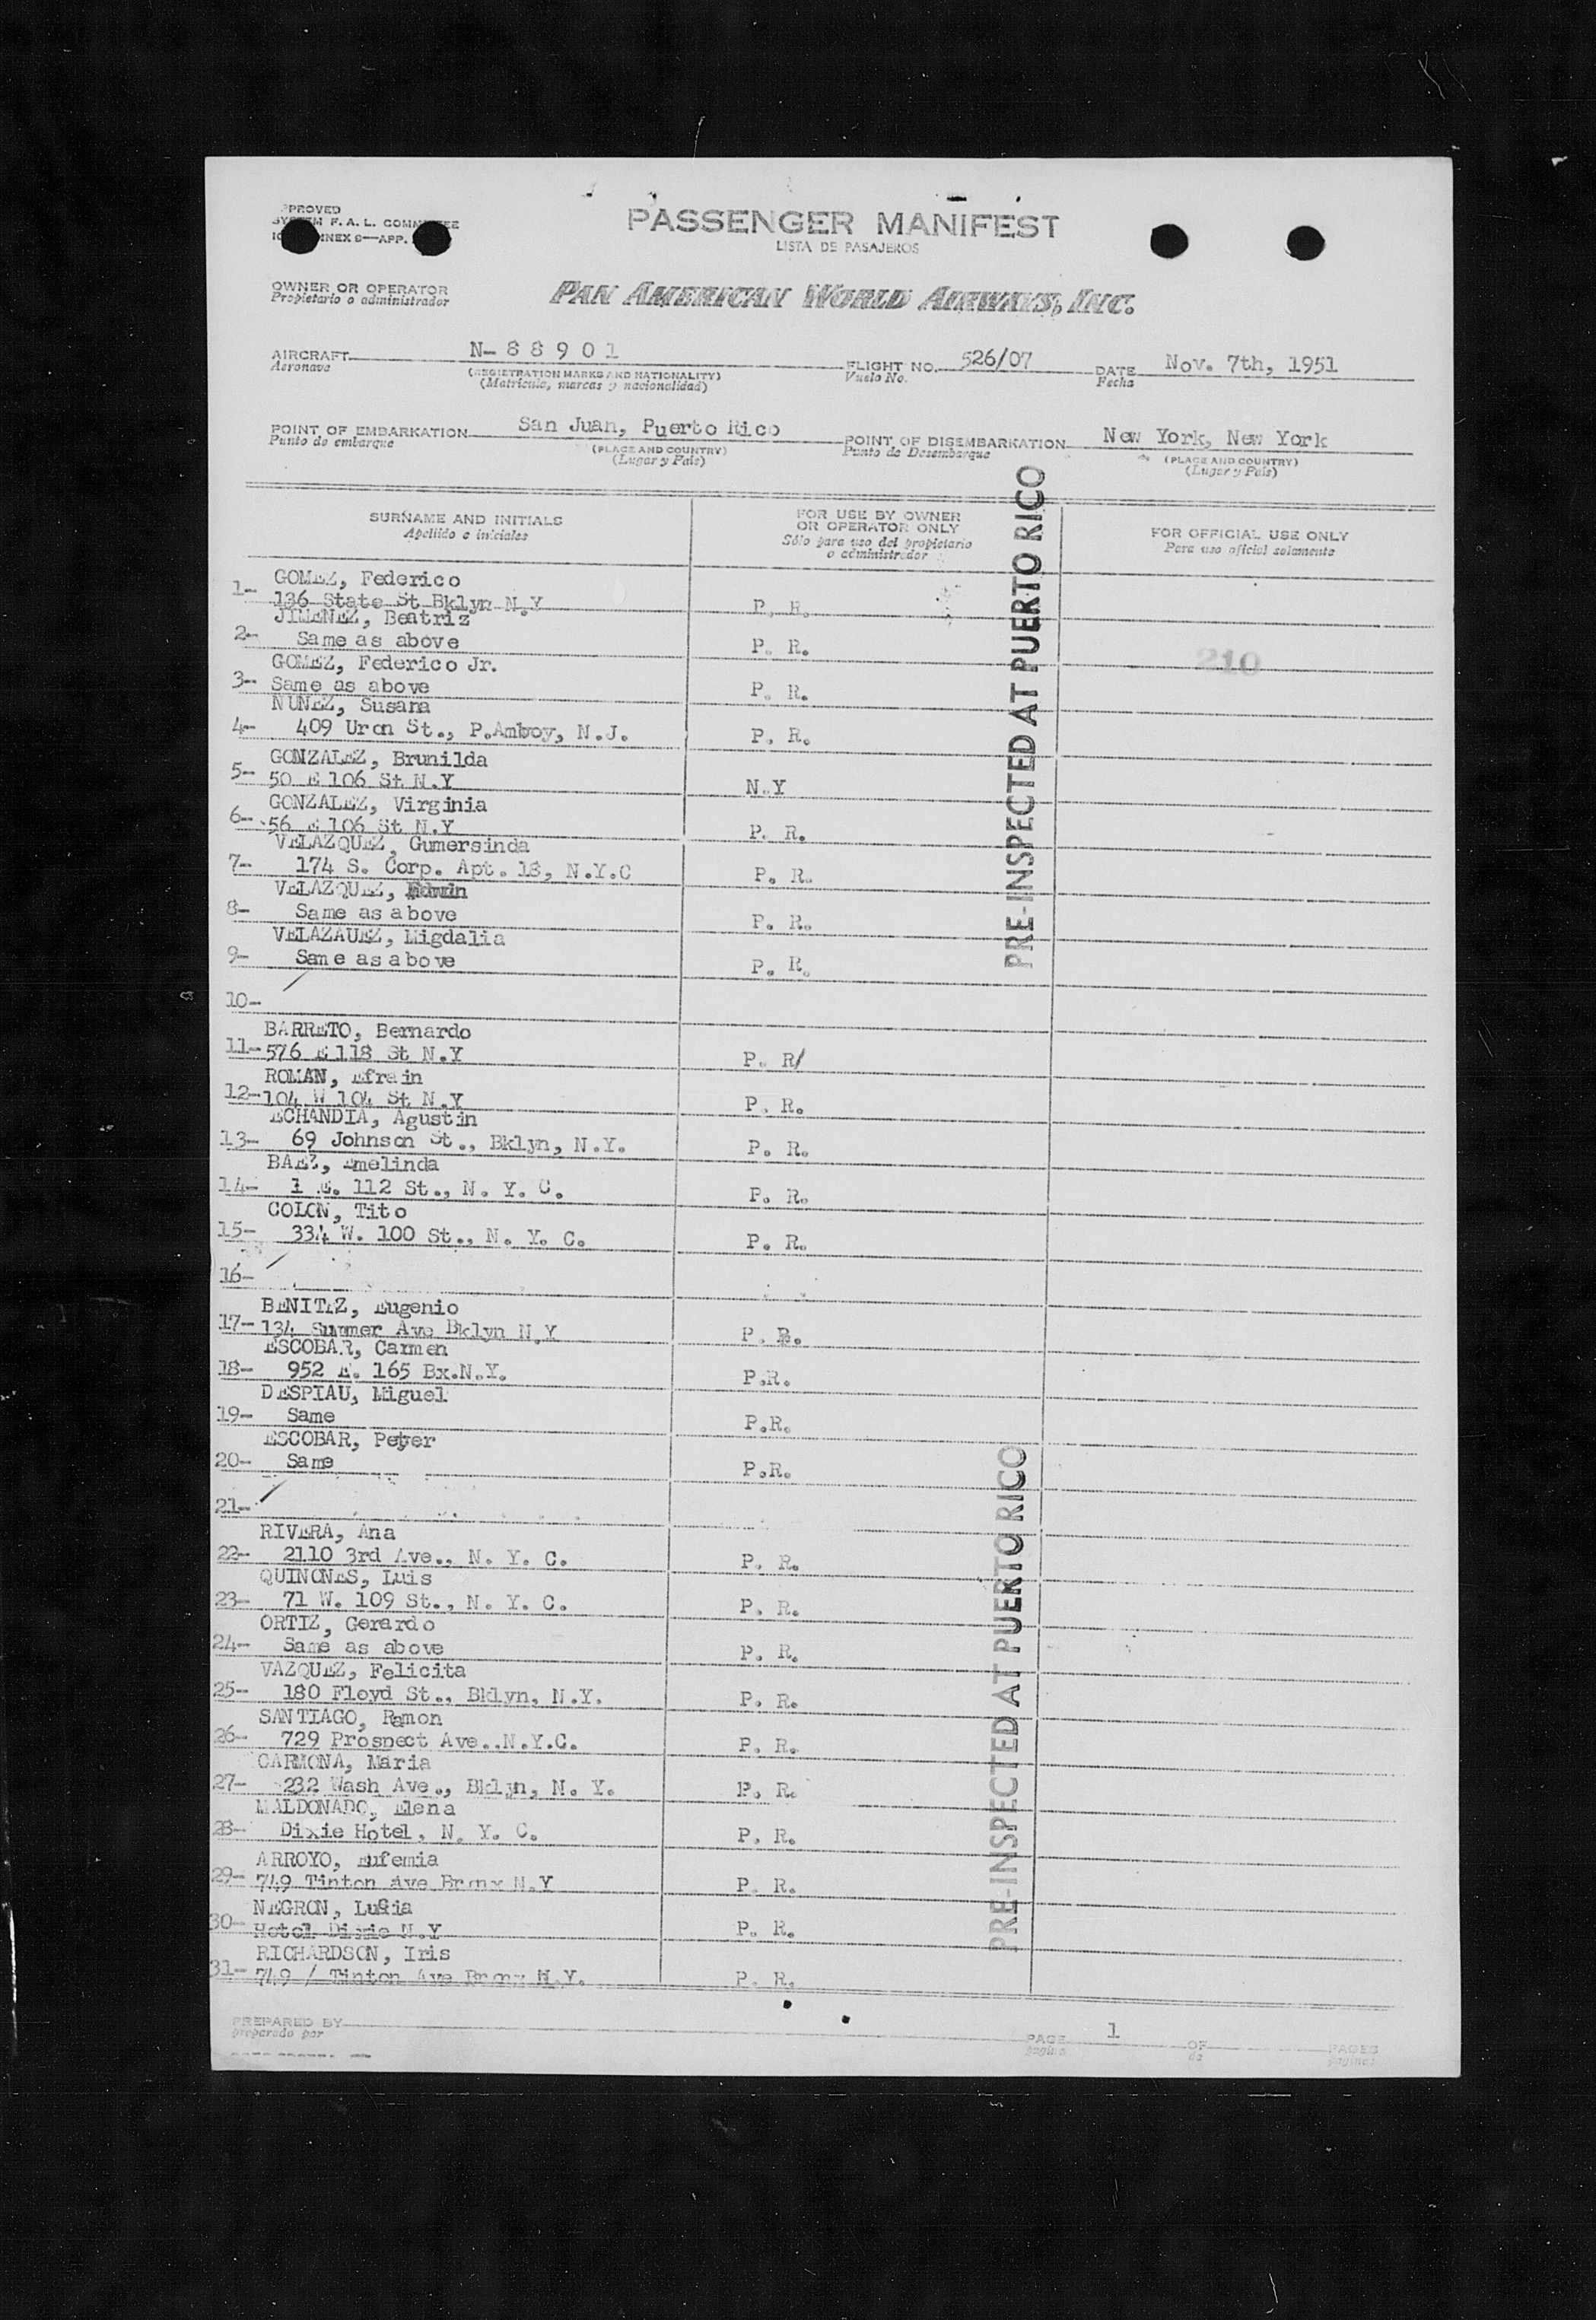 PPROVED
SYSTEM F. A. L. COMMITTEE
ANNEX 9—APP.
PASSENGER MANIFEST
LISTA DE PASAJEROS
OWNER OR OPERATOR
Propietario o administrador
PAN AMERICAN WORLD AIRWAYS, INC.
AIRCRAFT N- 8 8 9 0 1 FLIGHT NO. 526/07 DATE Nov. 7th, 1951
Aeronave (REGISTRATION MARKS AND NATIONALITY) Vuelo No. Fecha
(Matrícula, marcas y nacionalidad)
POINT OF EMBARKATION San Juan, Puerto Rico POINT OF DISEMBARKATION New York, New York
Punto de embarque (PLACE AND COUNTRY) Punto de Desembarque (PLACE AND COUNTRY)
(Lugar y País) (Lugar y País)
SURNAME AND INITIALS FOR USE BY OWNER OR OPERATOR ONLY FOR OFFICIAL USE ONLY
Apellido e iniciales Sólo para uso del propietario o administrador Para uso oficial solamente
GOMEZ, Federico
1- 136 State St Bklyn N.Y P. R.
JIMENEZ, Beatriz
2- Same as above P. R.
210
GOMEZ, Federico Jr.
3- Same as above P. R.
NUNEZ, Susana
4- 409 Uron St., P.Amboy, N.J. P. R.
GONZALEZ, Brunilda
5- 50 E 106 St N.Y N.Y
GONZALEZ, Virginia
6- 56 E 106 St N.Y P. R.
VELAZQUEZ, Gumersinda
7- 174 S. Corp. Apt. 18, N.Y.C P. R.
VELAZQUEZ, Edwin
8- Same as above P. R.
VELAZAUEZ, Migdalia
9- Same as above P. R.
PRE-INSPECTED AT PUERTO RICO
10-
BARRETO, Bernardo
11- 576 E 118 St N.Y P. R/
ROMAN, Efrain
12- 104 W 104 St N.Y P. R.
ECHANDIA, Agustin
13- 69 Johnson St., Bklyn, N.Y. P. R.
BAEZ, Emelinda
14- 1 E. 112 St., N. Y. C. P. R.
COLON, Tito
15- 334 W. 100 St., N. Y. C. P. R.
16-
BENITEZ, Eugenio
17- 134 Summer Ave Bklyn N.Y P. R.
ESCOBAR, Carmen
18- 952 E. 165 Bx.N.Y. P.R.
DESPIAU, Miguel
19- Same P.R.
ESCOBAR, Peter
20- Same P.R.
21-
RIVERA, Ana
22- 2110 3rd Ave., N. Y. C. P. R.
QUINONES, Luis
23- 71 W. 109 St., N. Y. C. P. R.
ORTIZ, Gerardo
24- Same as above P. R.
VAZQUEZ, Felicita
25- 180 Floyd St., Bklyn, N.Y. P. R.
SANTIAGO, Ramon
26- 729 Prospect Ave..N.Y.C. P. R.
CARMONA, Maria
27- 232 Wash Ave., Bklyn, N. Y. P. R.
MALDONADO, Elena
28- Dixie Hotel, N. Y. C. P. R.
ARROYO, Eufemia
29- 749 Tinton Ave Bronx N.Y P. R.
NEGRON, Lucia
30- Hotel Dixie N.Y P. R.
RICHARDSON, Iris
31- 749 / Tinton Ave Bronx N.Y. P. R.
PRE-INSPECTED AT PUERTO RICO
PREPARED BY PAGE 1 OF PAGES
preparado por página de páginas